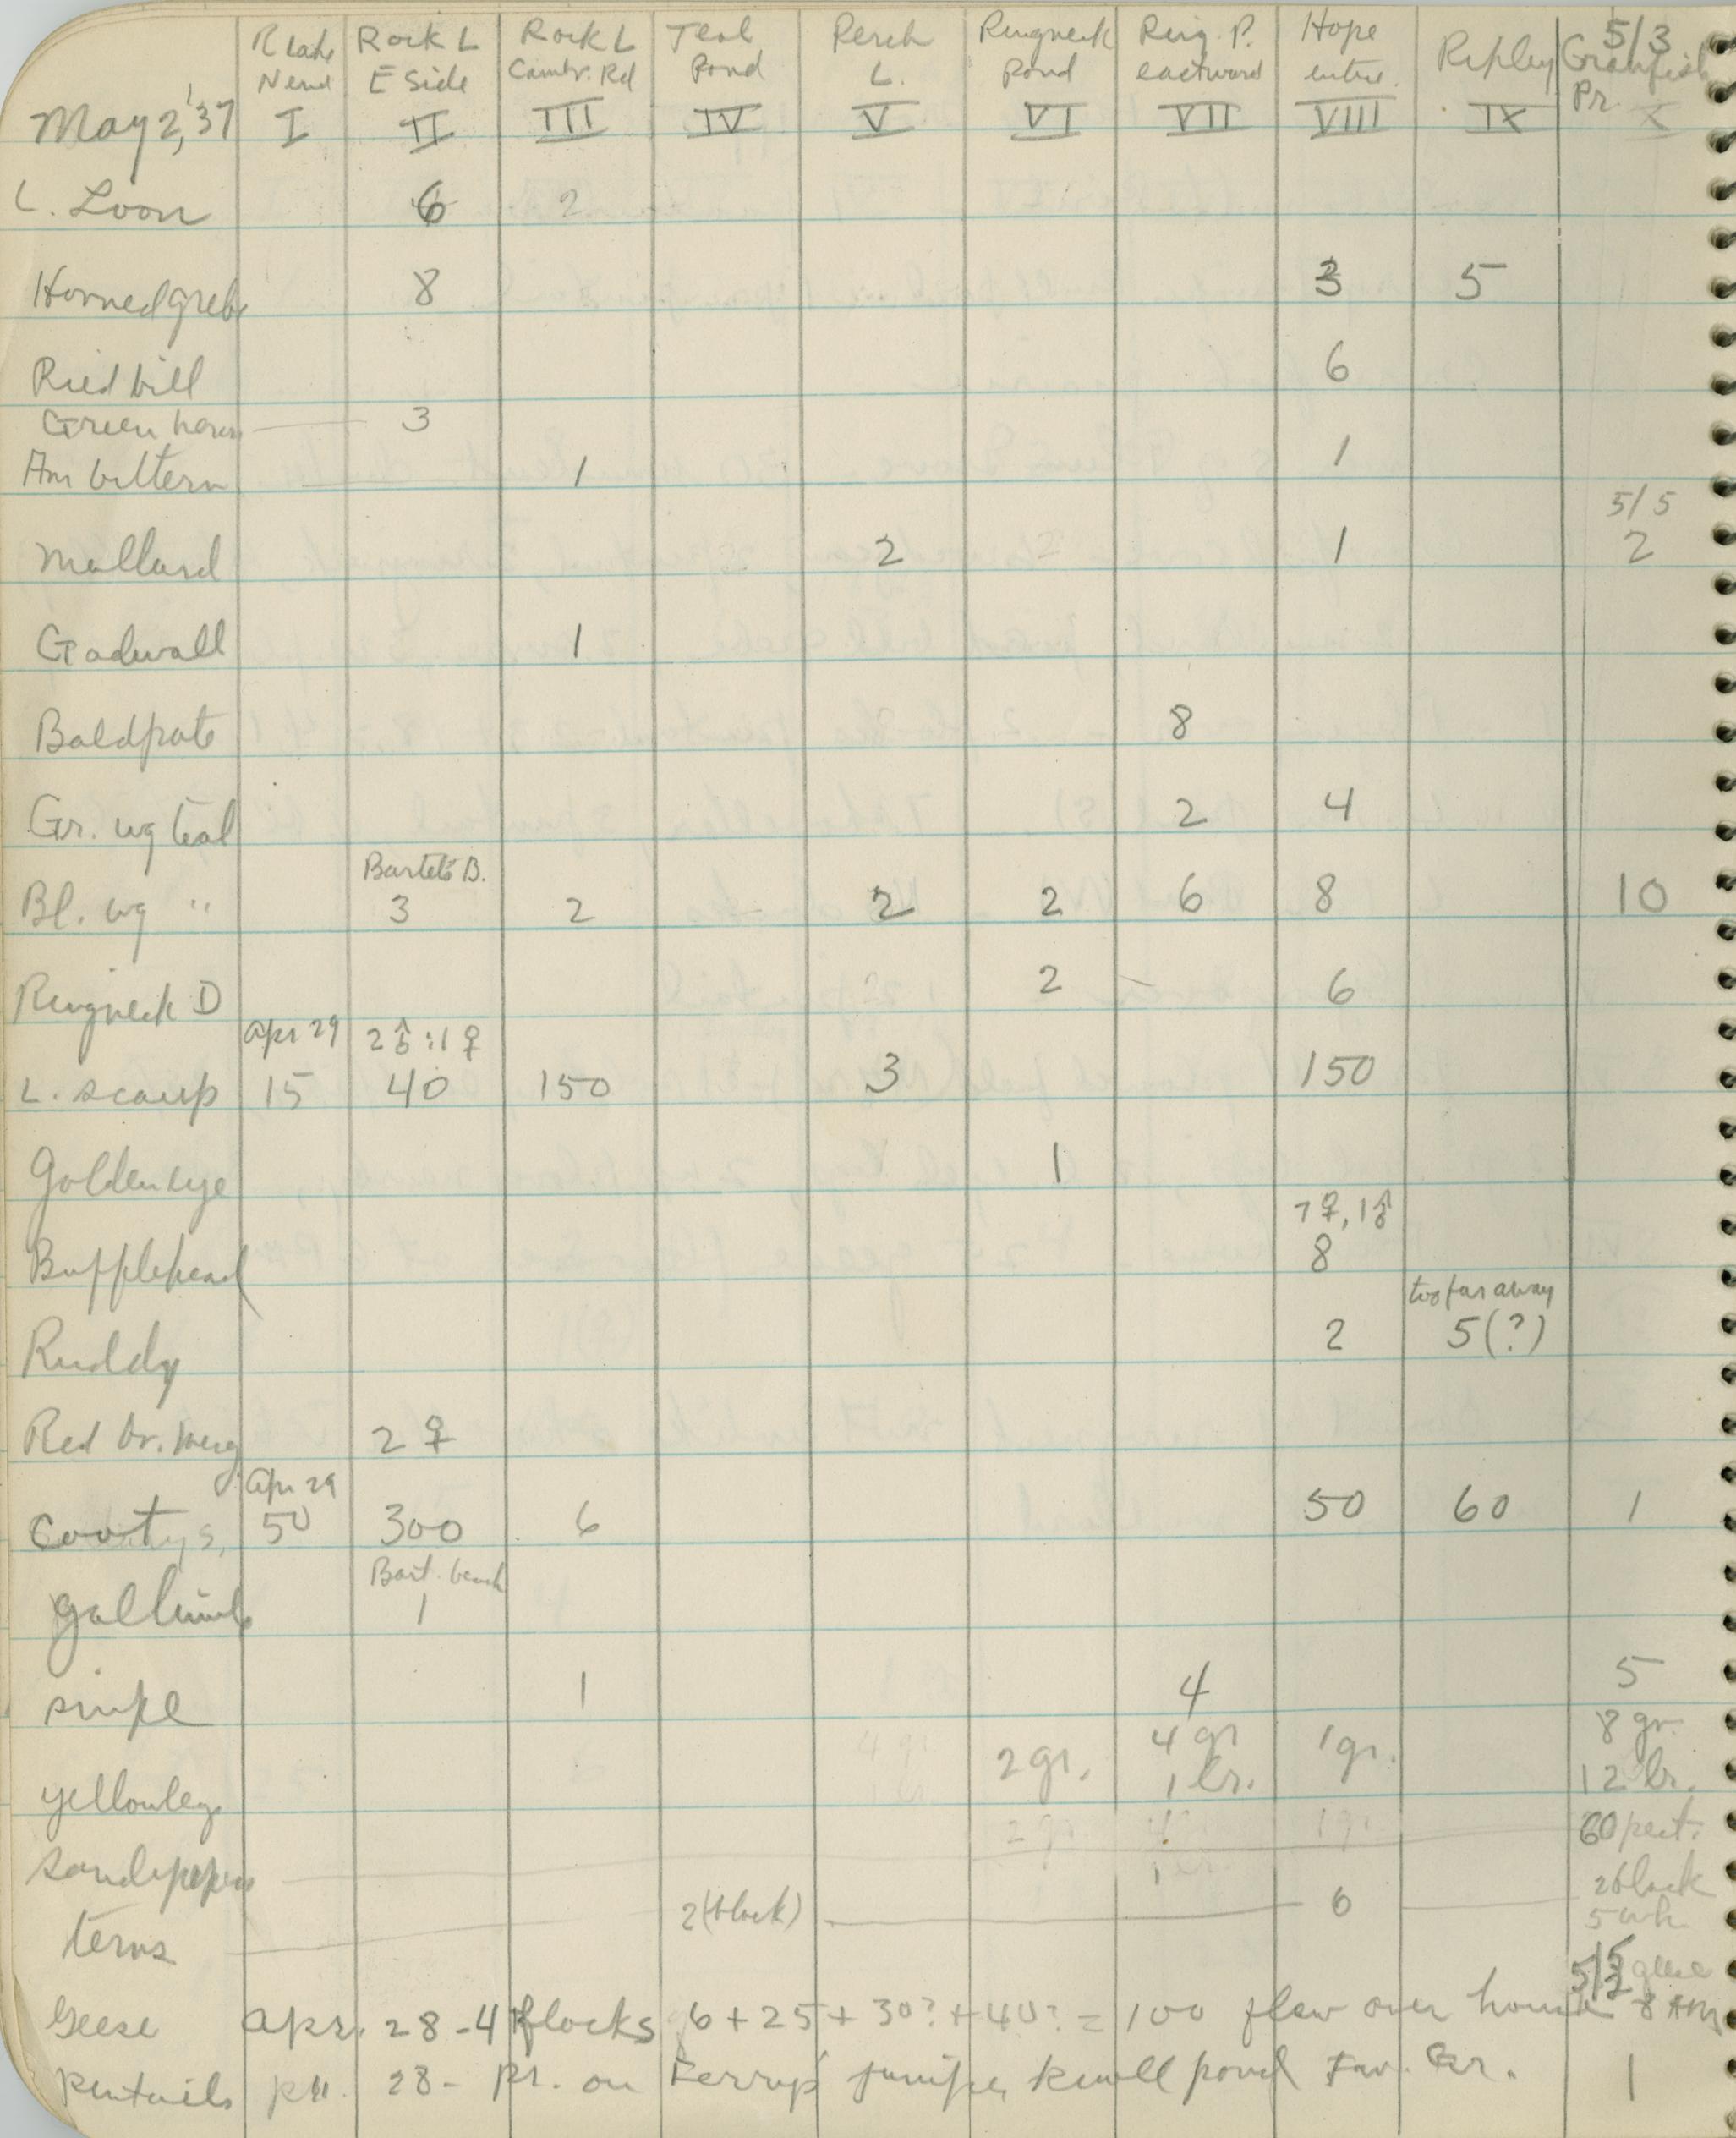 May 2, '37
R Lake N end I
Rock L E Side II
Rock L Cambr. Rd III
Teal Pond IV
Perch L. V
Ringneck Pond VI
Ring. P. eastward VII
Hope entire VIII
Ripley IX
5/3 Pr. X
L. Loon 6 2
Horned grebe 8 3 5
Pied bill 6
Green heron 3
Am bittern 1 1
5/5
Mallard 2 1 2
Gadwall 1
Baldpate 8
Gr. wg teal 2 4
Bartel's B.
Bl. wg " 3 2 2 2 6 8 10
Ringneck D 2 6
Apr 29 2♂:1♀
L. scaup 15 40 150 3 150
Goldeneye 1
7♀, 1♂
Bufflehead 8
too far away
Ruddy 2 5(?)
Red br. merg 2♀
Apr 29
Coot 50 300 6 50 60 1
Bart. beach
gallinule 1
snipe 1 4 5
4 gr 1 gr. 8 gr.
yellowlegs 2 gr. 1 lr. 12 lr.
60 pect.
Sandpipers
2 black
terns 2 (black) 6 5 wh.
5/5 geese
Geese Apr. 28 - 4 flocks 6 + 25 + 30? + 40? = 100 flew over house 8 AM
Pintails 28 - pr. on Perry's juniper knoll pond 1